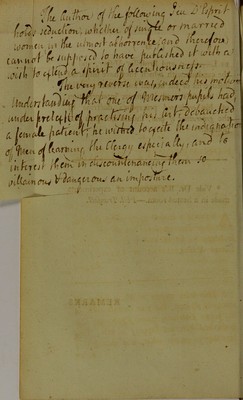 The Author of the following Jeu D'Esprit
holds seduction, whether of single or married
women in the utmost abhorrence, and therefore
cannot be supposed to have published it with a
wish to extend a spirit of licentiousness.
The very reverse was indeed his motive.
Understanding that one of Mesmers pupils had,
under pretext of practising his art, debauched
a female patient; he wished to excite the indignation
of Men of learning, the Clergy especially, and to
interest them in discountenancing them so
villainous & dangerous an imposture.